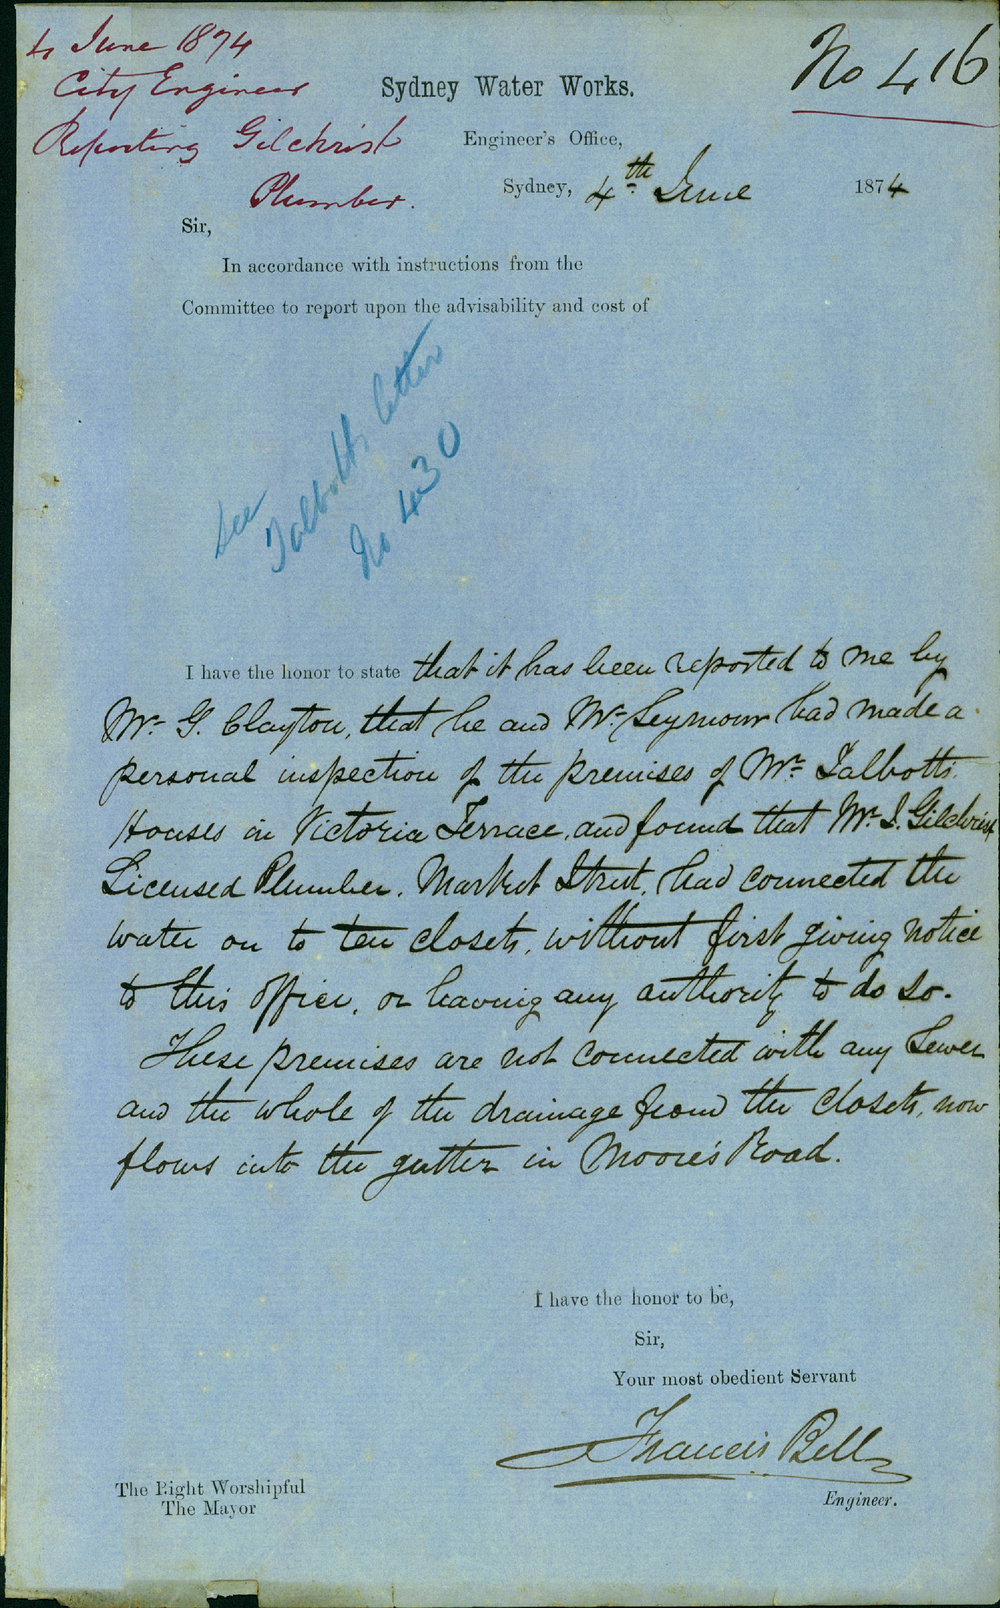 4 June 1874
City Engineer
Reporting Gilchrist
Plumber.
No 416
Sydney Water Works.
Engineer's Office,
Sydney, 4th June 1874
Sir,
In accordance with instructions from the
Committee to report upon the advisability and cost of
See
Talbotts letter
No 430
I have the honor to state that it has been reported to me by
Mr. G. Clayton, that he and Mr. Seymour had made a
personal inspection of the premises of Mr. Talbotts
Houses in Victoria Terrace, and found that Mr. J. Gilchrist
Licensed Plumber. Market Street, had connected the
water on to ten closets, without first giving notice
to this office, or having any authority to do so.
These premises are not connected with any Sewer
and the whole of the drainage from the closets, now
flows into the gutter in Moore's Road.
I have the honor to be,
Sir,
Your most obedient Servant
Francis Bell
Engineer.
The Right Worshipful
The Mayor